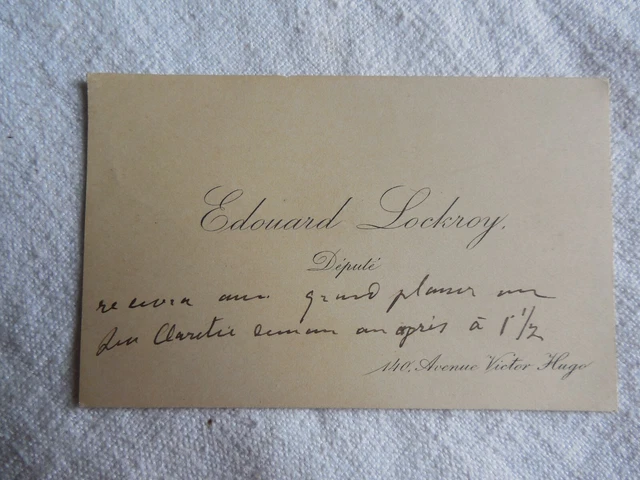 Edouard Lockroy.
Député
recevra avec grand plaisir
Claretie demain à 1 1/2
140, Avenue Victor Hugo